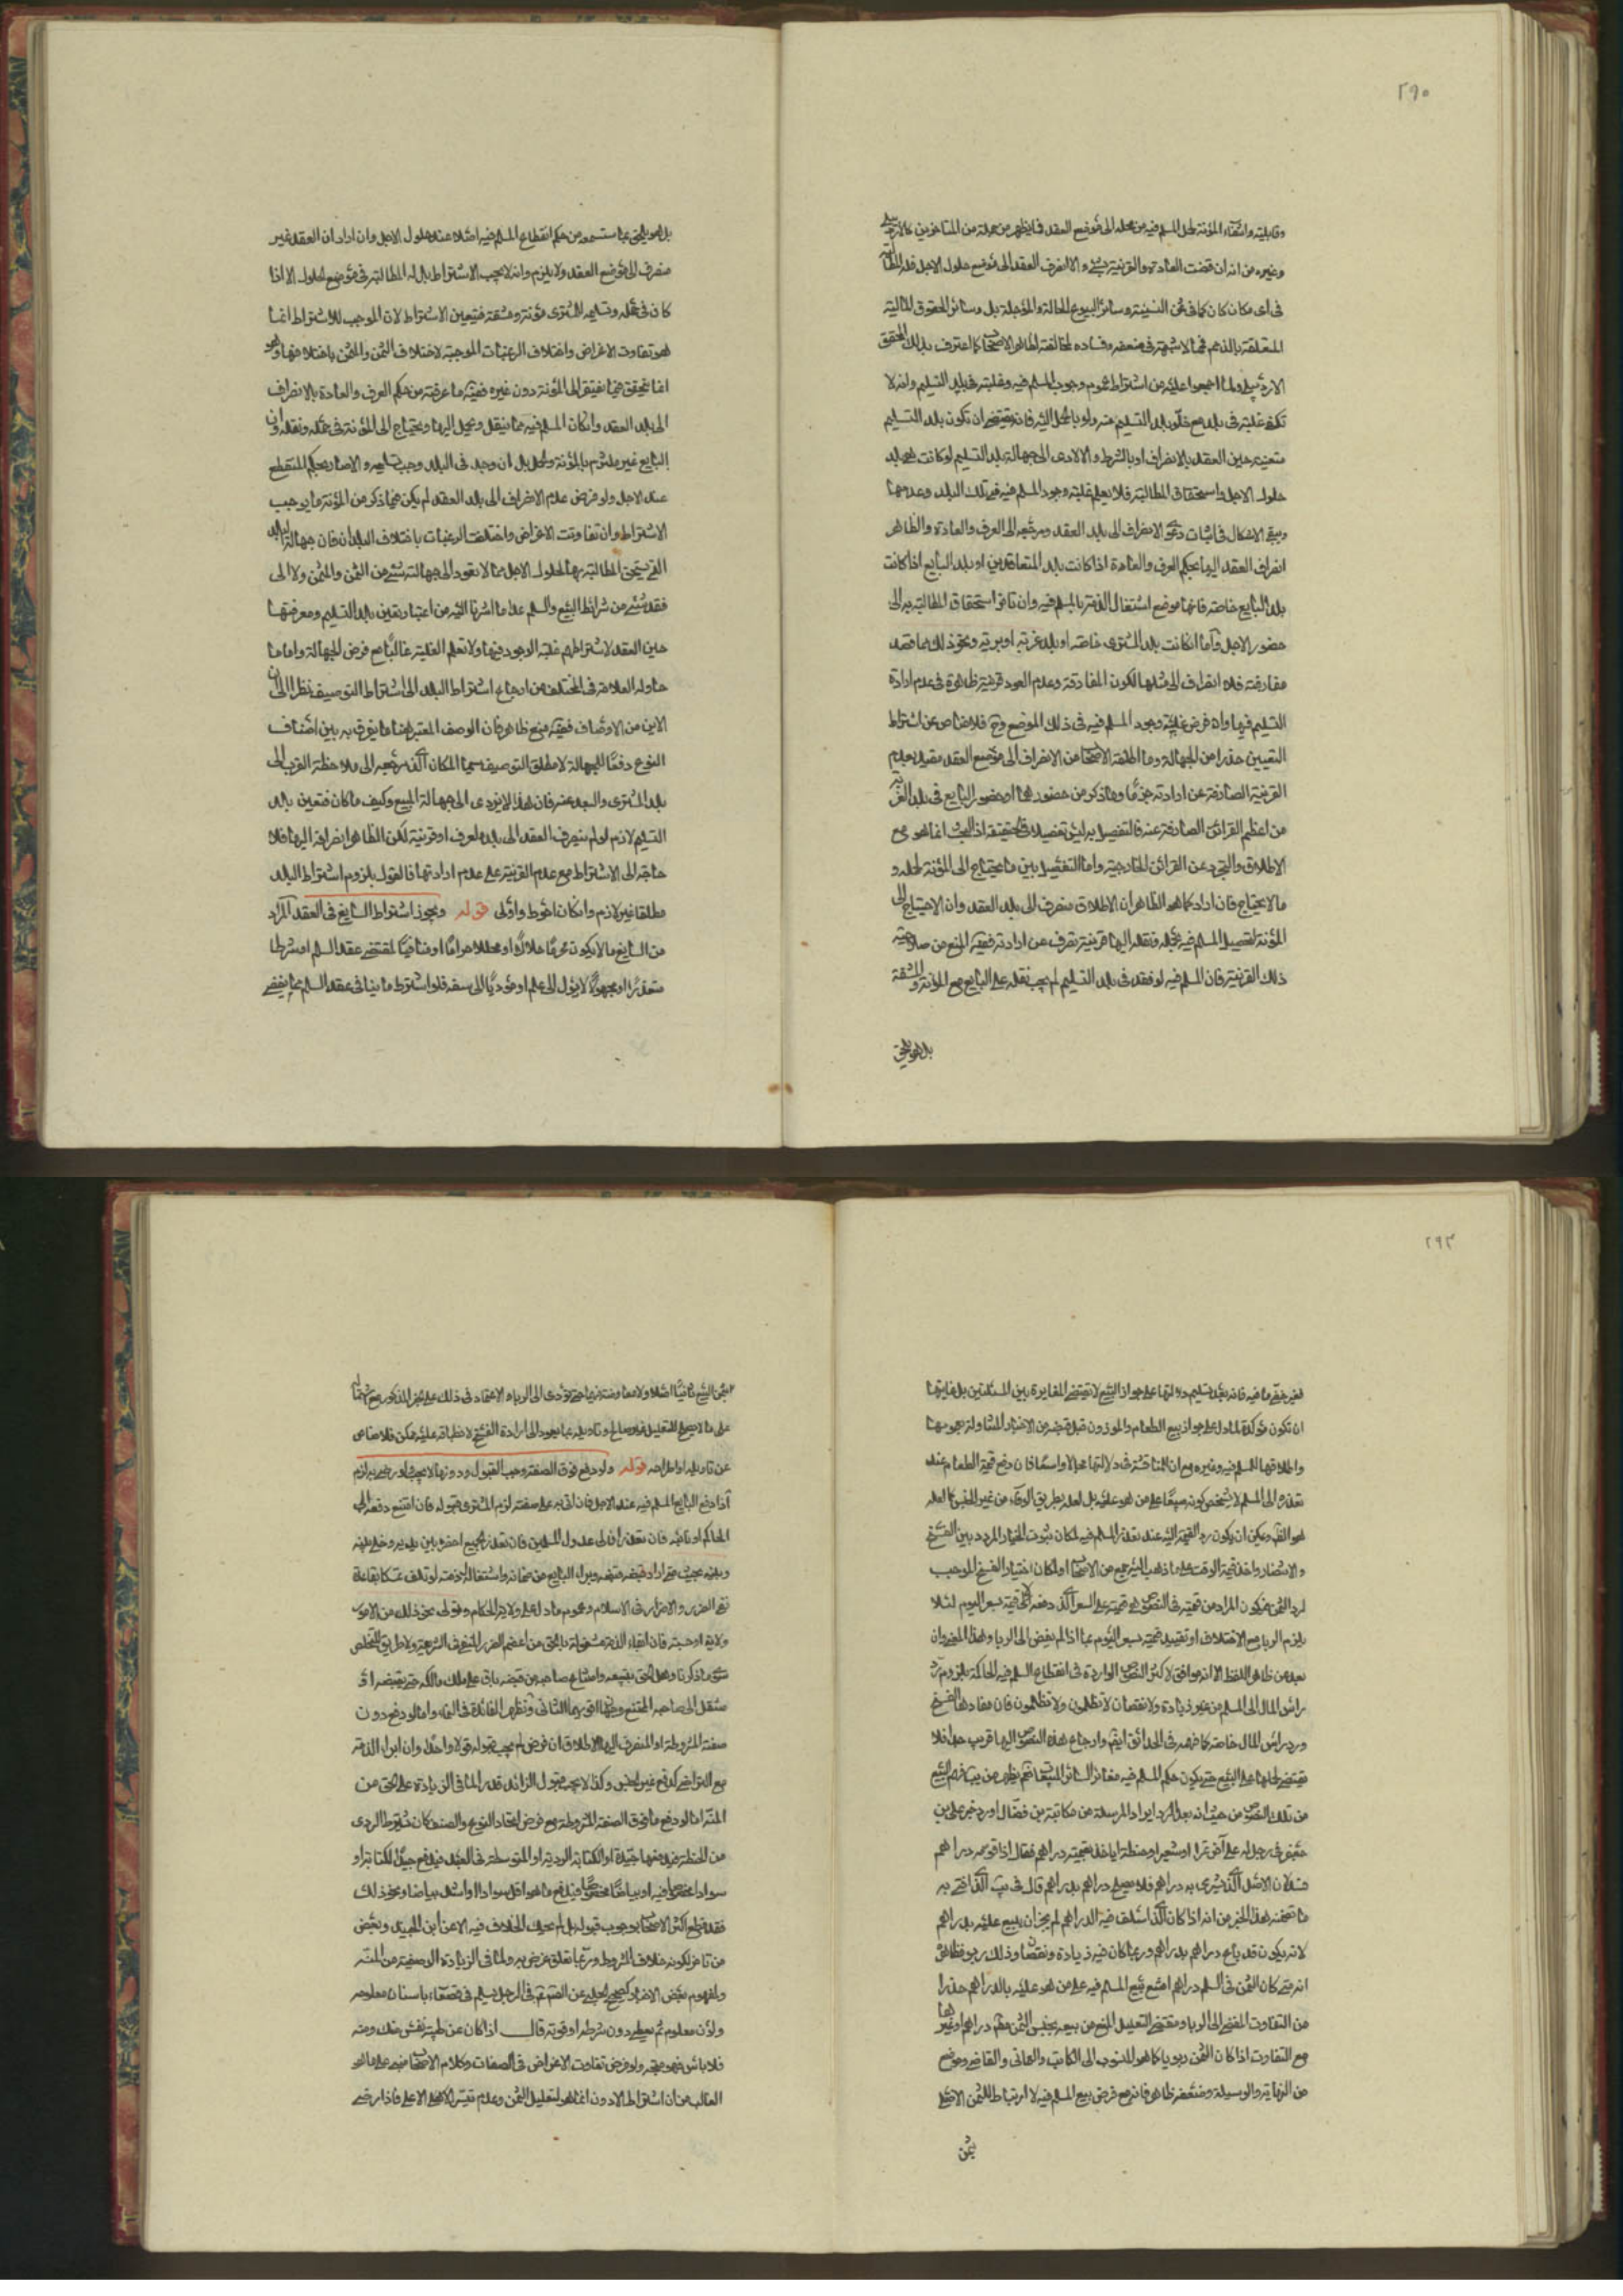 ٢٩٠
وقابليته وانتفاء المؤنة لحمل المسلم فيه من محله الى موضع العقد فما يظهر من جملة من المتاخرين كالاردبيلي
وغيره من انه ان قضت العادة والقرينة بشئ والا انصرف العقد الى موضع حلول الاجل فله المطالبة
في اى مكان كان كما في ثمن النسيئة وسائر البيوع الحالة والمؤجلة بل وسائر الحقوق المالية
المتعلقة بالذمم فما لا شبهة في ضعفه وفساده لمخالفته لظاهر الاصحاب كما اعترف بذلك المحقق
الاردبيلي ولما اجمعوا عليه من اشتراط عموم وجوب المسلم فيه وغلبته في بلد التسليم وانه لا
تكف غلبته في بلد مع خلو بلد التسليم منه ولو بالحمل اليه فانه يقتضى ان تكون بلد التسليم
متعينه حين العقد بالانصراف او بالشرط والا لادى الى جهالة بلد التسليم لو كانت هي بلد
حلول الاجل واستحقاق المطالبة فلا يعلم غلبته وجود المسلم فيه في تلك البلد وعدمها
وبقى الاشكال في اثبات دعوى الانصراف الى بلد العقد ومرجعه الى العرف والعادة والظاهر
انصراف العقد اليها بحكم العرف والعادة اذا كانت بلد المتعاقدين او بلد البايع اذا كانت
بلد البايع خاصة فانها موضع اشتغال الذمة بالمسلم فيه وان تاخر استحقاق المطالبة به الى
حضور الاجل واما اذا كانت بلد المشترى خاصة او بلد غربة او برية ونحو ذلك مما قصد
مفارقته فلا انصراف الى مثلها لكون المفارقة وعدم العود قرينة ظاهرة في عدم ارادة
التسليم فيها وان فرض غلبة وجود المسلم فيه في ذلك الموضع وح فلا مناص عن اشتراط
التعيين حذرا من الجهالة وما اطلقه الاصحاب من الانصراف الى موضع العقد مقيد بعدم
القرينة الصارفة عن ارادته جزما وما ذكر من حضورهما او حضور البايع في بلد الغربة
من اعظم القرائن الصارفة عنه فالتفصيل به ليس تفصيلا في الحقيقة اذ البحث انما هو مع
الاطلاق والتجرد عن القرائن الخارجية واما التفصيل بين ما يحتاج الى المؤنة لحمله و
ما لا يحتاج فان اراد كما هو الظاهر ان الاطلاق منصرف الى بلد العقد وان الاحتياج الى
المؤنة لتحصيل المسلم فيه بحمله ونقله اليها قرينة تصرف عن ارادته ففيه المنع من صلاحية
ذلك القرينة فان المسلم فيه لو فقد في بلد التسليم لم يجب نقله على البايع مع المؤنة والمشقة
بل هو يلحق
بل هو يلحق بما ستسمعه من حكم انقطاع المسلم فيه اصلا عند حلول الاجل وان اراد ان العقد غير
منصرف الى موضع العقد ولا يلزم وانه لا يجب الاشتراط بل له المطالبة في موضع الحلول الا اذا
كان في حمله وتسليمه للمشترى مؤنة ومشقة فيتعين الاشتراط لان الموجب للاشتراط انما
هو تفاوت الاغراض واختلاف الرغبات الموجبة لاختلاف الثمن والمثمن باختلافهما وهو
انما يتحقق فيما يفتقر الى المؤنة دون غيره ففيه ما عرفته من حكم العرف والعادة بالانصراف
الى بلد العقد وان كان المسلم فيه مما ينقل ويحمل اليها ويحتاج الى المؤنة في حمله ونقله وان
البايع غير ملتزم بالمؤنة والحمل بل ان وجد في البلد وجب تسليمه والا صار بحكم المنقطع
عند الاجل ولو فرض عدم الانصراف الى بلد العقد لم يكن فيما ذكر من المؤنة ما يوجب
الاشتراط وان تفاوتت الاغراض واختلفت الرغبات باختلاف البلدان فان جهالة البلد
التي يستحق المطالبة بها لحلول الاجل مما لا تعود الى جهالة شئ من الثمن والمثمن ولا الى
فقد شئ من شرائط البيع والسلم عدا ما اشرنا اليه من اعتبار تعين بلد التسليم ومعرفتها
حين العقد لاشتراطهم غلبة الوجود فيها ولا تعلم الغلبة غالبا مع فرض الجهالة واما ما
حاوله العلامة في المختلف من ارجاع اشتراط البلد الى اشتراط التوصيف نظرا الى ان
الاين من الاوصاف ففيه منع ظاهر فان الوصف المعتبر هنا ما يفرق به بين اصناف
النوع دفعا للجهالة لا مطلق التوصيف سيما المكان الذي مرجعه الى ملاحظة القرب الى
بلد المشترى والبعد عنه فان هذا لا يؤدى الى جهالة المبيع وكيف ما كان فتعين بلد
التسليم لازم لو لم ينصرف العقد الى بلد لعرف او قرينة لكن الظاهر انصرافه اليها فلا
حاجة الى الاشتراط مع عدم القرينة على عدم ارادتها فالقول بلزوم اشتراط البلد
مطلقا غير لازم وان كان احوط واولى قوله ويجوز اشتراط السايغ في العقد المراد
من السايغ ما لا يكون محرما حلالا او محللا حراما او منافيا لمقتضى عقد السلم او شرطا
متعذرا او مجهولا لا يؤل الى علم او مؤديا الى سفه فلو اشترط ما ينافى عقد السلم بما يفضى
٢٩٣
لغير خفى ما فيه فانه بعد تسليم دلالتها على جواز البيع لا تقتضى المغايرة بين المسئلتين بل غايتها
ان تكون مؤكدة لما دل على جواز بيع الطعام والموزون قبل قبضه من الاخبار المتناولة بعمومها
واطلاقها للمسلم فيه وغيره مع ان المناقشة في دلالتها مجالا واسعا فان دفع قيمة الطعام عند
تعذره الى المسلم لا يشخص كونه مبيعا على من هو عليه بل لعله بطريق الوفاء من غير الجنس كما لعله
هو الظ ويمكن ان يكون رد القيمة اليه عند تعذر المسلم فيه لمكان ثبوت الخيار المردد بين الفسخ
والانتظار واخذ قيمة الوقت على ما ذهب اليه جمع من الاصحاب او لمكان اختيار الفسخ الموجب
لرد الثمن فيكون المراد من قيمته في النصوص هي قيمته على السعر الذي دفعه لا قيمة سعر اليوم لئلا
يلزم الربا مع الاختلاف او تقييد قيمته بسعر اليوم بما اذا لم يفض الى الربا وهذا المعنى وان
بعد من ظاهر اللفظ الا انه موافق لاكثر النصوص الواردة في انقطاع المسلم فيه الحاكمة بلزوم رد
راس المال الى المسلم من غير زيادة ولا نقصان لا تظلمون ولا تظلمون فان مفادها الفسخ
ورد راس المال خاصة كما فهمه في الحدائق ايض وارجاع هذه النصوص اليها قريب جدا فلا
يقتضى حملها على البيع حتى يكون حكم المسلم فيه مغاير لسائر المبيعات نعم يظهر من يب فهم البيع
من تلك النصوص من حيث انه بعد ايراد المرسلة من مكاتبة بن فضال اورد خبر على بن
جعفر في رجل له على آخر تمرا او شعيرا او حنطة اياخذ بقيمته دراهم فقال اذا قومه دراهم
فسد لان الاصل الذي يشترى به دراهم فلا يصلح دراهم بدراهم قال في يب الذي افتى به
ما تضمنه هذا الخبر من انه اذا كان الذي اسلف فيه الدراهم لم يجز ان يبيع عليه بدراهم
لانه يكون قد باع دراهم بدراهم وربما كان فيه زيادة ونقصا وذلك ربو فظاهره
انه متى كان الثمن في السلم دراهم امتنع بيع المسلم فيه على من هو عليه بالدراهم حذرا
من التفاوت المفضى الى الربا ومقتضى التعليل المنع من بيعه بجنس الثمن مطم دراهم او غيرها
مع التفاوت اذا كان الثمن ربويا كما هو المنسوب الى الكاتب والعمانى والقاضى وموضع
من النهاية والوسيلة وضعفه ظاهر فانه مع فرض بيع المسلم فيه لا ارتباط للثمن الاصلى
بثمن
بثمن البيع ثانيا اصلا ولا معاوضة بينهما حتى تؤدى الى الربا والاعتماد في ذلك على الخبر المذكور مع
على ما لا يصلح للتعليل غير صالح وتاويله بما يعود الى ارادة الفسخ لانطباقه عليه ممكن فلا مناص
عن تاويله او اطراحه قوله ولو دفع فوق الصفة وجب القبول ودونها لا يجب ولو رضى به لزم
اذا دفع البايع المسلم فيه عند الاجل فان اتى به على صفته لزم المشترى قبوله فان امتنع دفعه الى
الحاكم او نائبه فان تعذر فالى عدول المسلمين فان تعذر الجميع احضره بين يديه وخلى بينه
وبينه بحيث متى اراد قبضه قبضه وبراء البايع من ضمانه واشتغال ذمته لو تلف تمسكا بقاعة
نفى الضرر والاضرار في الاسلام وعموم ما دل على ولاية الحكام وتولى نحو ذلك من الامور
ولاية او حسبة فان ابقاء الذمة مشغولة بالحق من اعظم الضرر المنفى في الشريعة ولا طريق للتخلص
سوى ما ذكرنا وهل الحق بتعيينه وامتناع صاحبه من قبضه باق على ملك مالكه حتى يقبضه او
منتقل الى صاحبه الممتنع وجهان اقويهما الثانى وتظهر الفائدة في النماء واما لو دفع دون
صفته المشروطة او المنصرف اليها الاطلاق ان فرض لم يجب قبوله قولا واحدا وان ابراء الذمة
مع التراضى كدفع غير الجنس وكذا لا يجب قبول الزائد قدرا لما في الزيادة على الحق من
المنة اما لو دفع ما فوق الصفة المشروطة مع فرض اتحاد النوع والصنف كان شرط الردى
من الحنطة فيدفعها جيدة او الكتابة الردية او المتوسطة في العبد فيدفع جيد الكتابة او
سوادا مخصوصا فيه او بياضا مخصوصا فيدفع ما هو اقل سوادا او اشد بياضا ونحو ذلك
فقد قطع اكثر الاصحاب بوجوب قبوله بل لم يحك الخلاف فيه الا عن ابن الجنيد وبعض
من تاخر لكونه خلاف المشروط وربما تعلق غرض به ولما في الزيادة الوصفية من المنة
ولمفهوم بعض الاخبار كصحيح الحلبي عن الصم في الرجل يسلم في وصفاء باسنان معلومه
ولون معلوم ثم يعطى دون شرطه او فوقه قال اذا كان عن طيبة نفس منك ومنه
فلا باس فهو متجه ولو فرض تفاوت الاغراض في الصفات وكلام الاصحاب مبنى على ما هو
الغالب من ان اشتراط الادون انما هو لتعليل الثمن وعدم تيسر الاعلى فاذا رضى